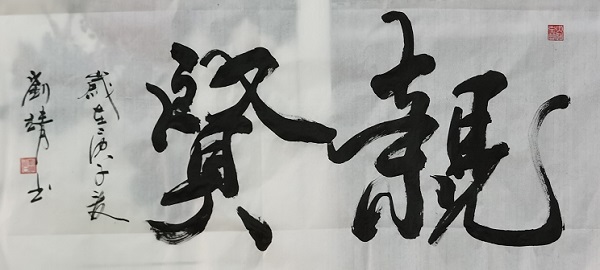 親賢
歲在庚子夏
劉靖书